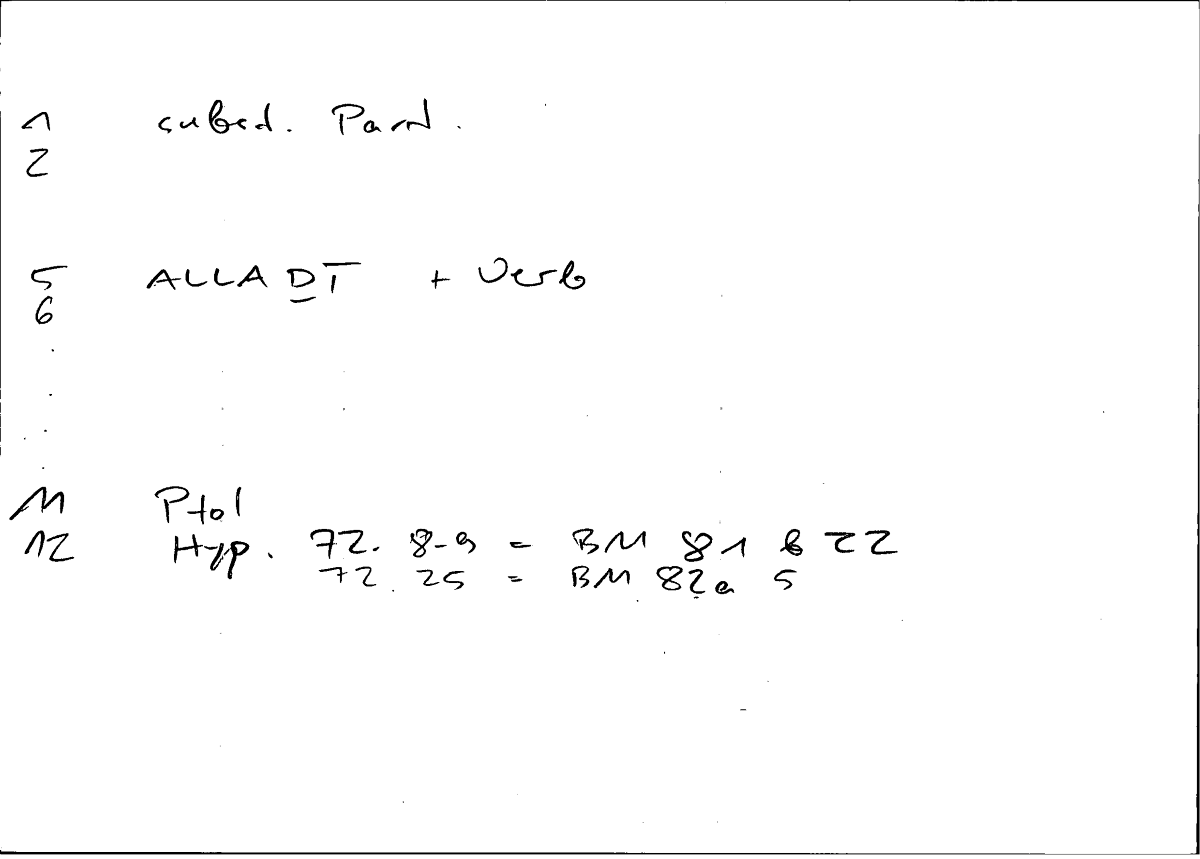 1 subord. Pard.
2
5 ALLADT + Verb
6
.
.
.
.
11 Ptol
12 Hyp. 72. 8-9 = BM 81 b 22
72. 25 = BM 82a 5